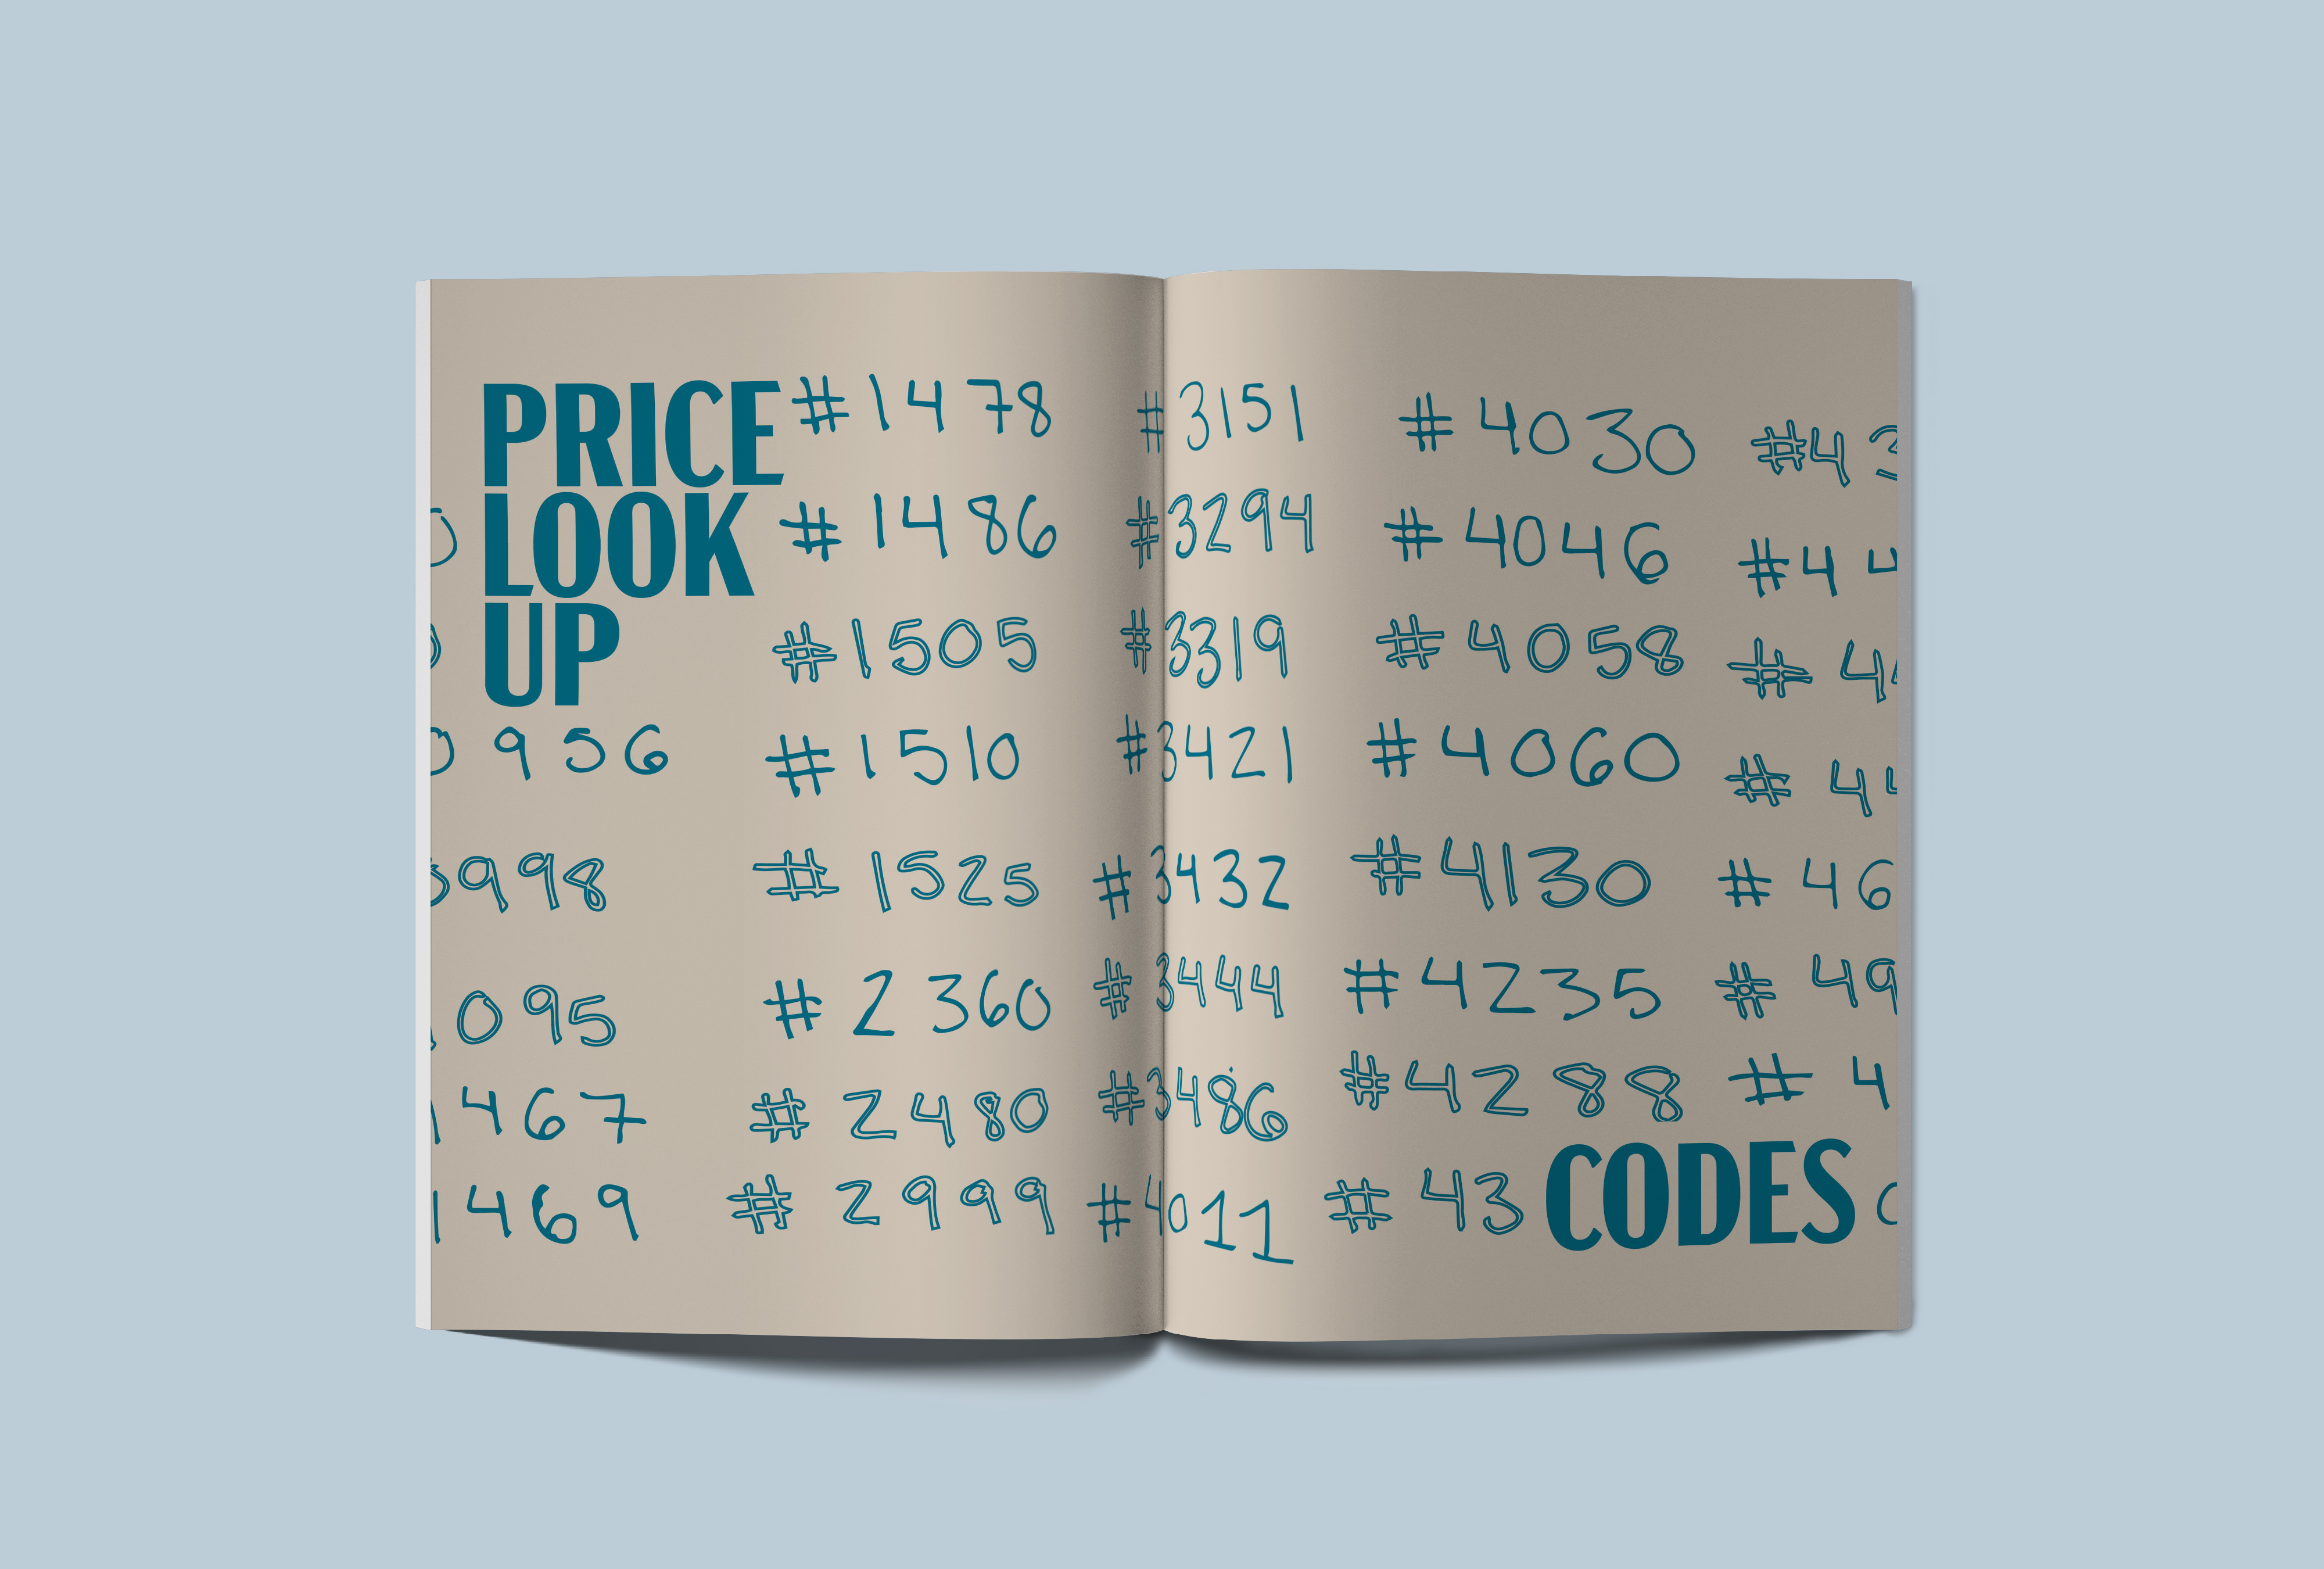 PRICE
LOOK
UP
0956
998
095
467
1469
#1478
#1486
#1505
#1510
#1525
#2360
#2480
#2999
#3151
#3294
#3319
#3421
#3432
#3444
#3486
#4011
#4030
#4046
#4058
#4060
#4130
#4235
#4288
#43
CODES
#43
#44
#44
#44
#46
#49
#4